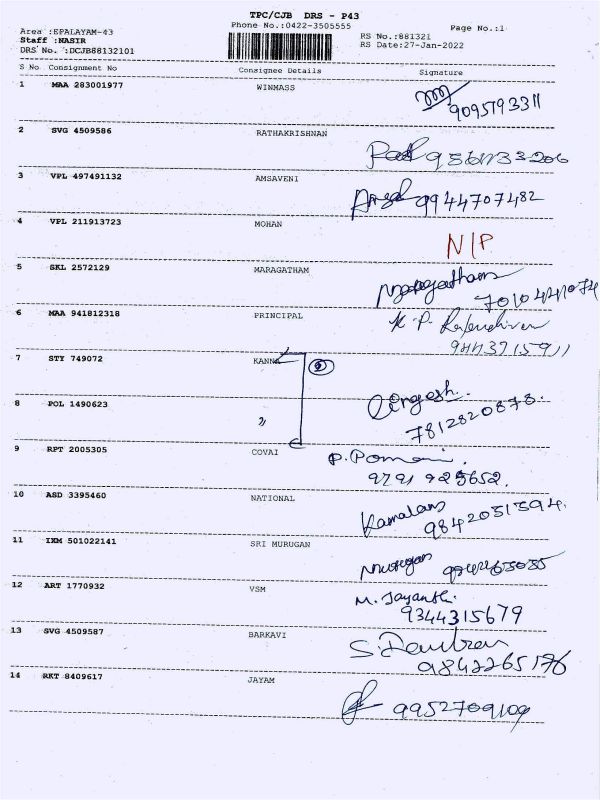 TPC/CJB DRS - P43
Area :EPALAYAM-43 Phone No.:0422-3505555 Page No.:1
Staff :NASIR RS No.:881321
DRS No. :DCJB88132101 RS Date:27-Jan-2022
S No Consignment No Consignee Details Signature
1 MAA 283001977 WINMASS
9095193311
2 SVG 4509586 RATHAKRISHNAN
3 VPL 497491132 AMSAVENI
9944707482
4 VPL 211913723 MOHAN
N/P
5 SKL 2572129 MARAGATHAM
Maragatham
6 MAA 941812318 PRINCIPAL
K. P.
7 STY 749072 KANNA
8 POL 1490623 〃
7812820878.
9 RPT 2005305 COVAI
P. Pomani.
9791 925652.
10 ASD 3395460 NATIONAL
Kamalam
9842031394.
11 IXM 501022141 SRI MURUGAN
Murugan
12 ART 1770932 VSM
M. Jayanthi.
9344315679
13 SVG 4509587 BARKAVI
9842265176
14 RKT 8409617 JAYAM
9952709109